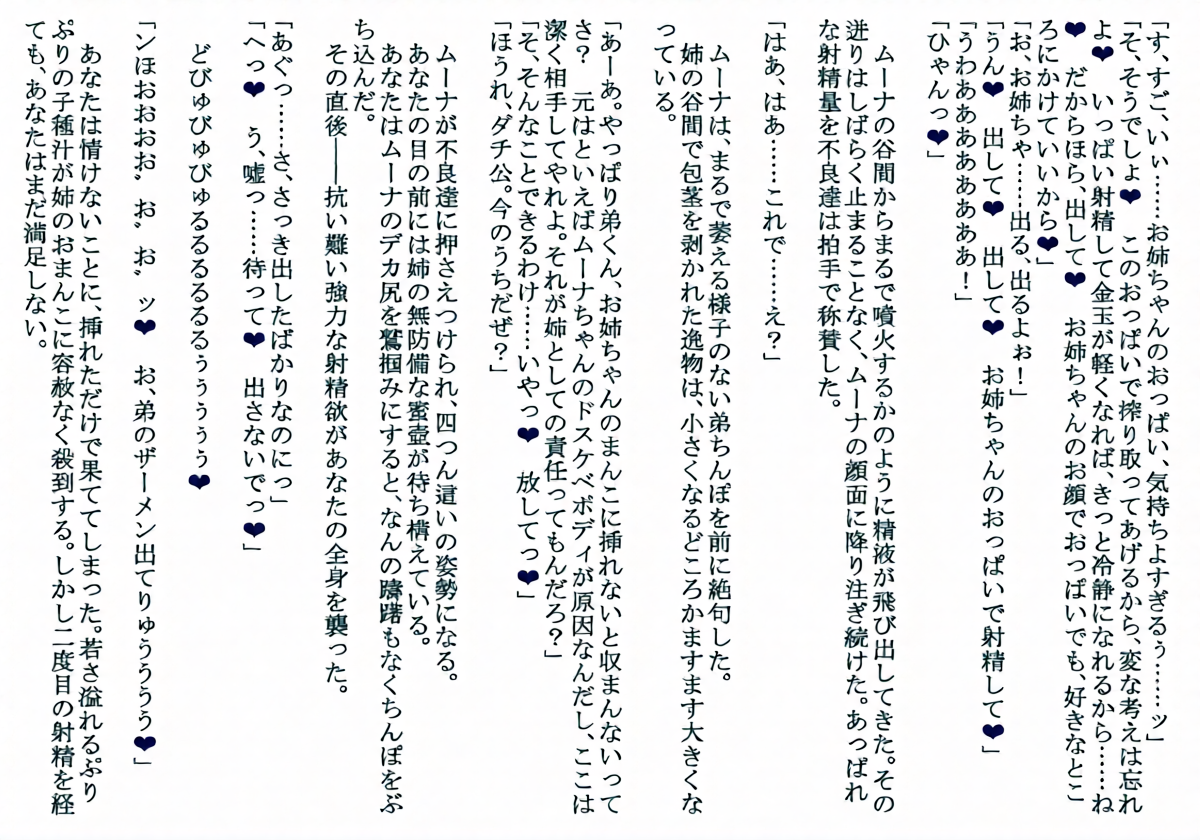 「す、すご、いぃ……お姉ちゃんのおっぱい、気持ちよすぎるぅ……ッ」
「そ、そうでしょ❤　このおっぱいで搾り取ってあげるから、変な考えは忘れ
よ❤　いっぱい射精して金玉が軽くなれば、きっと冷静になれるから……ね
❤　だからほら、出して❤　お姉ちゃんのお顔でおっぱいでも、好きなとこ
ろにかけていいから❤」
「お、お姉ちゃ……出る、出るよぉ！」
「うん❤　出して❤　出して❤　お姉ちゃんのおっぱいで射精して❤」
「うわああああああああ！」
「ひゃんっ❤」
　ムーナの谷間からまるで噴火するかのように精液が飛び出してきた。その
迸りはしばらく止まることなく、ムーナの顔面に降り注ぎ続けた。あっぱれ
な射精量を不良達は拍手で称賛した。
「はあ、はあ……これで……え？」
　ムーナは、まるで萎える様子のない弟ちんぽを前に絶句した。
　姉の谷間で包茎を剥かれた逸物は、小さくなるどころかますます大きくな
っている。
「あーあ。やっぱり弟くん、お姉ちゃんのまんこに挿れないと収まんないって
さ？　元はといえばムーナちゃんのドスケベボディが原因なんだし、ここは
潔く相手してやれよ。それが姉としての責任ってもんだろ？」
「そ、そんなことできるわけ……いやっ❤　放してっ❤」
「ほうれ、ダチ公。今のうちだぜ？」
　ムーナが不良達に押さえつけられ、四つん這いの姿勢になる。
　あなたの目の前には姉の無防備な蜜壺が待ち構えている。
　あなたはムーナのデカ尻を鷲掴みにすると、なんの躊躇もなくちんぽをぶ
ち込んだ。
　その直後――抗い難い強力な射精欲があなたの全身を襲った。
「あぐっ……さ、さっき出したばかりなのにっ」
「へっ❤　う、嘘っ……待って❤　出さないでっ❤」
　どびゅびゅびゅるるるるるるぅぅぅぅぅ❤
「ンほおおおお゛　お゛　お゛　ッ❤　お、弟のザーメン出てりゅうううう❤」
　あなたは情けないことに、挿れただけで果ててしまった。若さ溢れるぷり
ぷりの子種汁が姉のおまんこに容赦なく殺到する。しかし二度目の射精を経
ても、あなたはまだ満足しない。